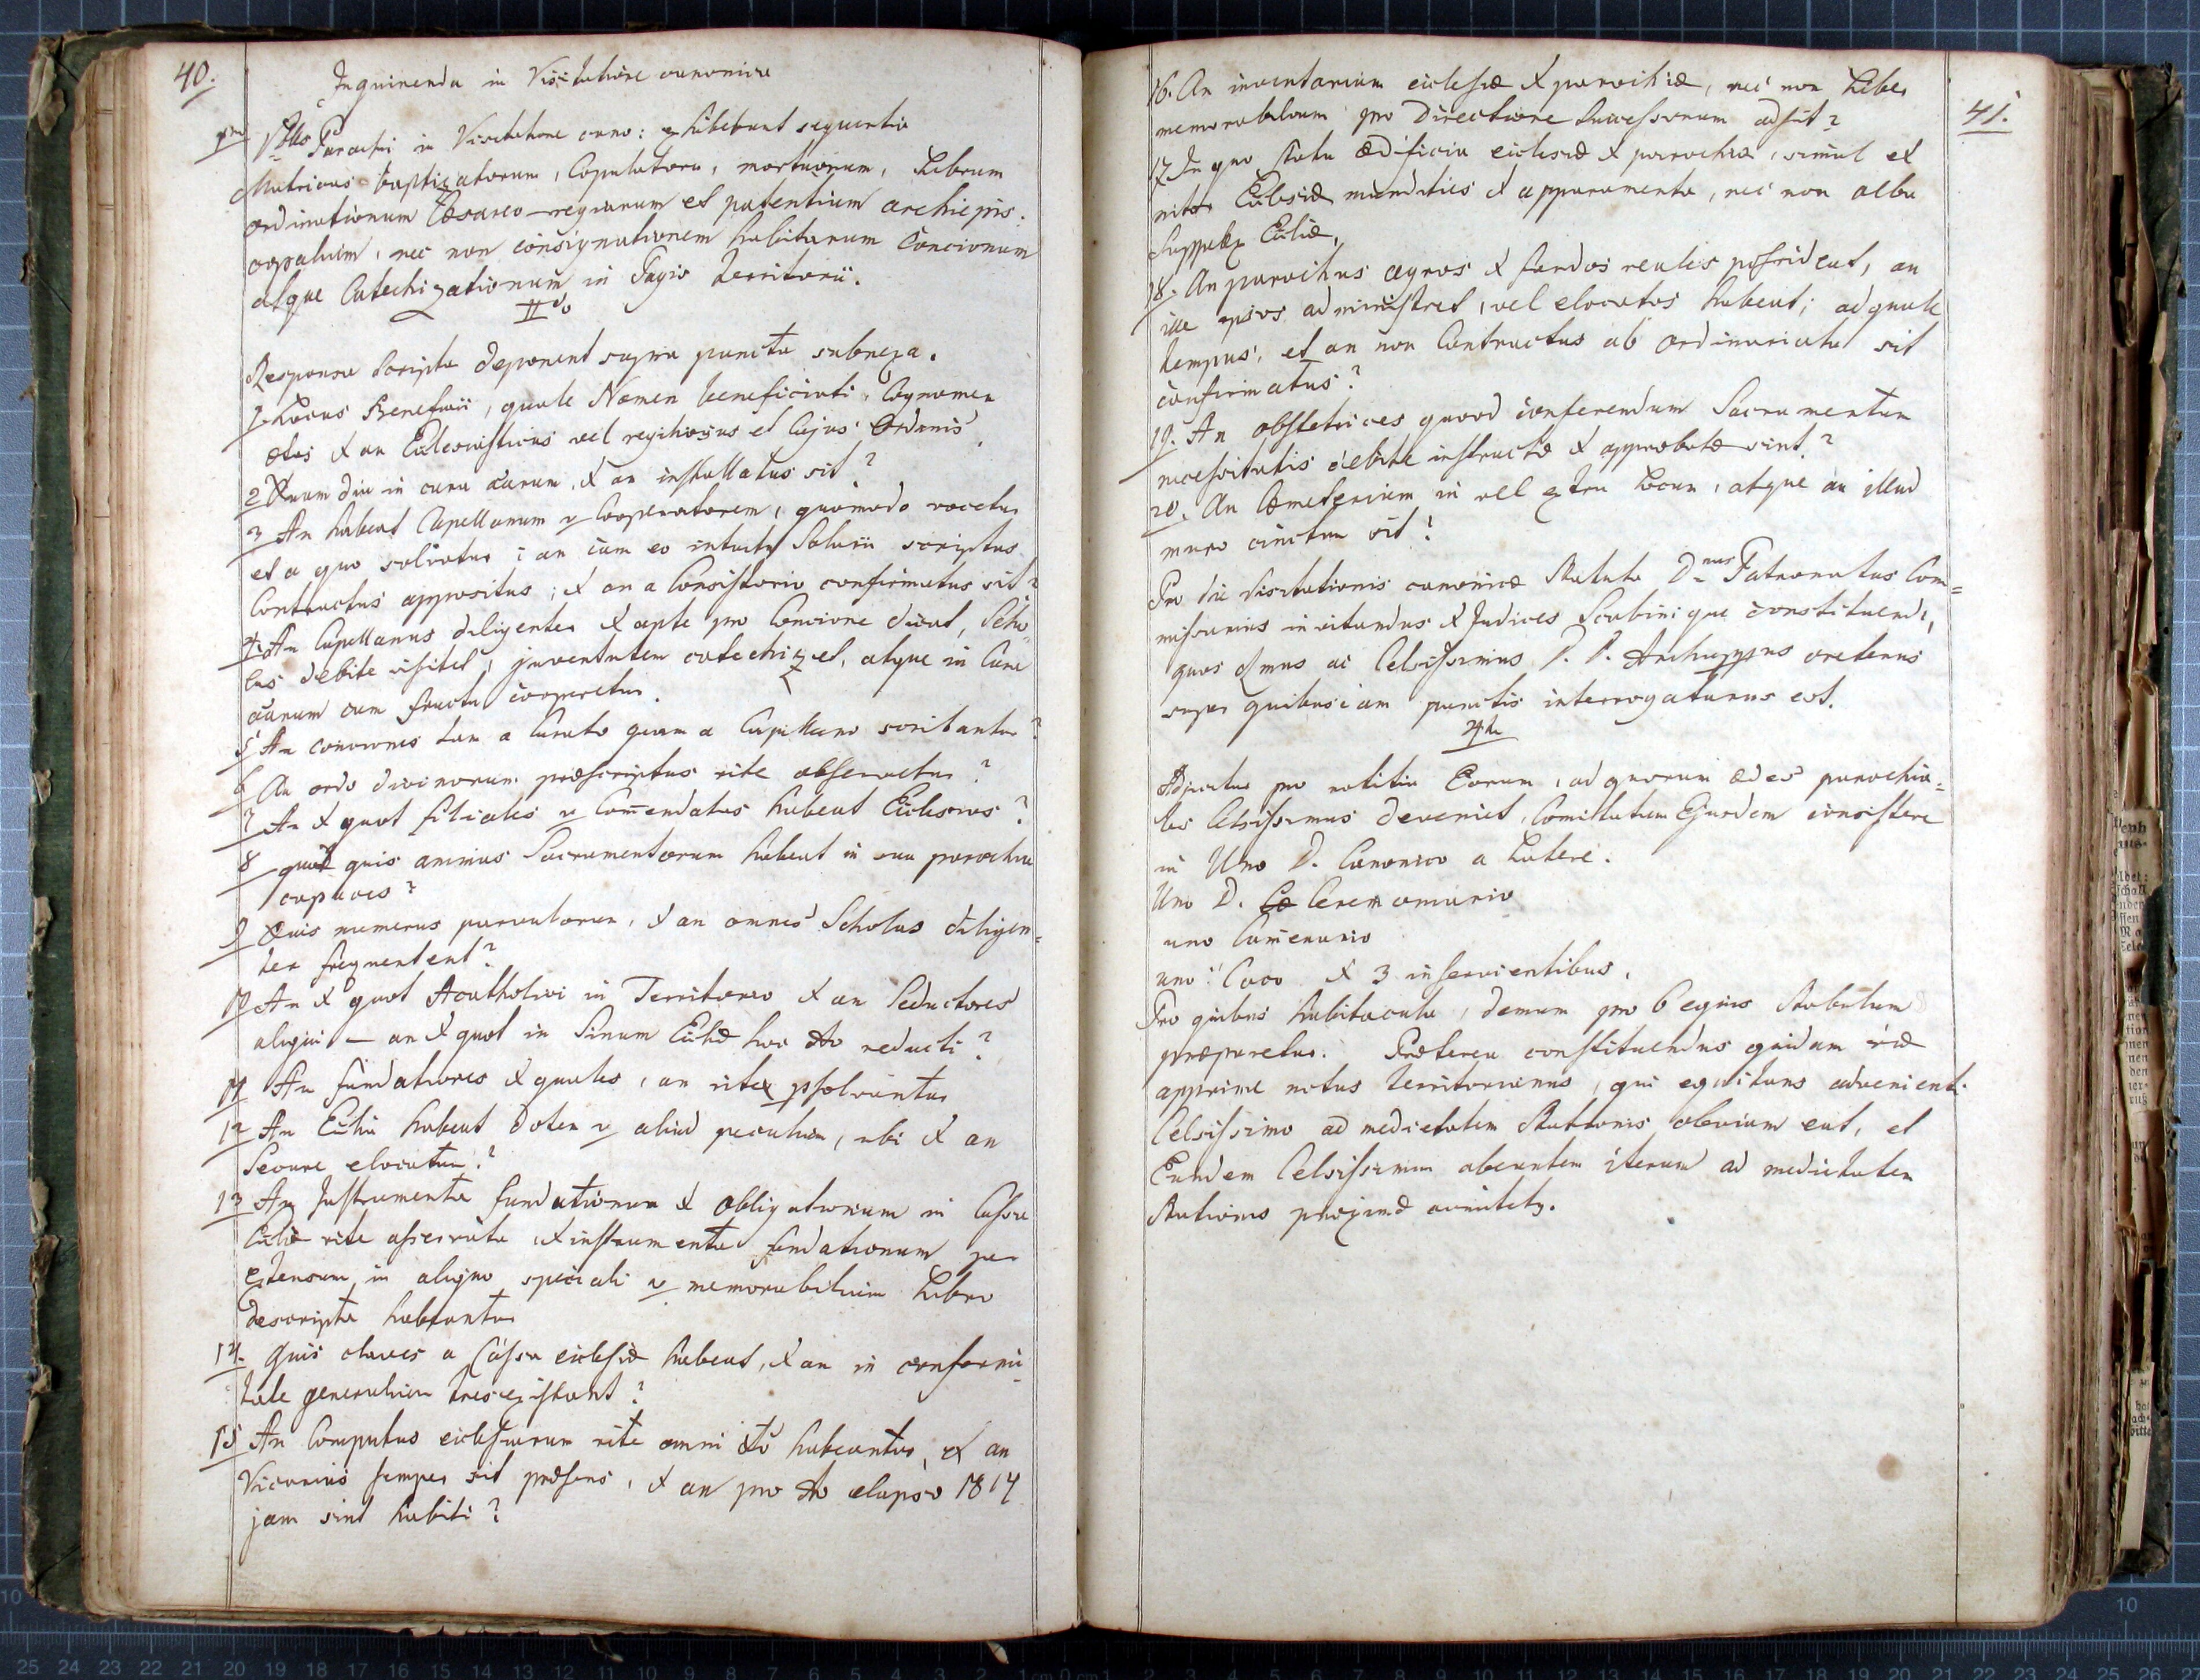 40.
Inquirenda in Visitatione canonica
Parochi in Visitatione cano: exhibebunt sequentia
Matricas baptizatorum, Copulatoru, mortuorum, Librum
ordinationum Cæsareo-regiarum et patentium archiepis-
copalium, nec non consignationem habitarum Concionum
atque Catechizationum in Pagis Territorii.
II do
Responsa scripta deponent supra puncta subnexa.
1 Locus Beneficii, quale Nomen beneficiati, Cognomen
ætas & an Ecclesiasticus vel religiosus et Cujus Ordinis
2 Quam diu in cura aarum, & an installatus sit?
3 An habeat Capellanum v Cooperatorem, quomodo vocetur
et a quo solvatur; an cum eo intuitu Salarii scriptus
Contractus appositus; & an a Consistorio confirmatus sit?
4. An Capellanus diligenter & apte pro Concione dicat, Scho-
las debite visitet, juventutem catechizet, atque in Cura
aarum cum fructu cooperetur.
5 An conciones tam a Curato quam a Capellano scribantur?
6 An ordo divinorum præscriptus rite observetur?
7 An & quot filiales v Comendatas habeat Ecclesias?
8 quot quis animas Sacramentorum habeat in sua parochia
capaces?
9 Quis numerus parvulorum, & an omnes Scholas diligen=
ter frequentent?
10 An & quot Acatholici in Territorio & an Seductores
aliqui - an & quot in Sinum Eccliæ hoc Ao reducti?
11 An fundationes & quales, an rite psolvantur
12 An Ecclia habeat dotem v aliud peculium, ubi & an
Secure elocatum?
13 An Instrumenta fundationum & obligationum in Cassa
Eccliæ rite asservata, & instrumenta fundationum per
extensum in aliquo speciali v memorabilium Libro
descripta habeantur
14. Quis claves a Cassa ecclesiæ habeat, & an in conformi-
tate generalium tres existant?
15 An Computus ecclesiarum rite omni Ao habeantur, & an
Vicarius semper sit præsens, & an pro Ao elapso 1814
jam sint habiti?
41.
16. An inventarium ecclesiæ & parochiæ, nec non Liber
memorabilium pro Directione Successorum adsit?
17 In quo statu ædificia ecclesiæ & parochiæ, simul et
nitor Ecclesiæ mundities & apparamenta, nec non alba
Suppelex Eccliæ,
18. An parochus agros & fundos reales possideat, an
ille ipsos administret, vel elocatos habeat; ad quale
tempus, et an non Contractus ab ordinariatu sit
confirmatus?
19. An obstetrices quoad conferendum Sacramentum
necessitatis debite instructæ & approbatæ sint?
20. An Cæmeterium in vel extra Locum, atque an illud
muro cinctum sit?
Pro die visitationis canonicæ statuta Dnus Patronatus Com=
missarius invitandus & Judices Scabinique constituendi,
quos Celsissimus D. D. Archieppus oretenus
super quibusdam punctis interrogaturus est.
Adjicitur pro notitia Eorum, ad quorum ædes parochia=
les Celsissimus deveniet, Comitatum Ejusdem consistere
in Uno D. Canonico a Latere.
Uno D. Ceremoniario
uno Camerario
uno Coco & 3 inservientibus,
Pro quibus habitacula, demum pro 6 equis Stabulum
præparetur. Præterea constituendus quidam viæ
apprime notus territorianus, qui equitans advenienti
Celsissimo ad medietatem Stationis obviam eat, et
Eundem Celsissimum abeuntem iterum ad medietatem
Stationis proximæ comitetur.